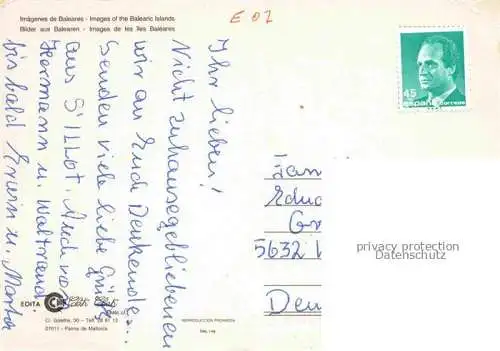 Imágenes de Baleares - Images of the Balearic Islands
Bilder aus Balearen - Images de les Iles Baléares
E 07
45
españa correos
Ihr lieben!
Nicht zuhausegebliebenen
wir an Euch Denkende..
Senden viele liebe Grüße
aus S'ILLOT. Auch von
Hermann u. Waltraud
bis bald Erwin u. Marta
Fam
Edua
Gr
5632 W
Deu
privacy protection
Datenschutz
EDITA
C/. Goethe, 30 - Tel. 28 81 13
07011 - Palma de Mallorca
REPRODUCCION PROHIBIDA